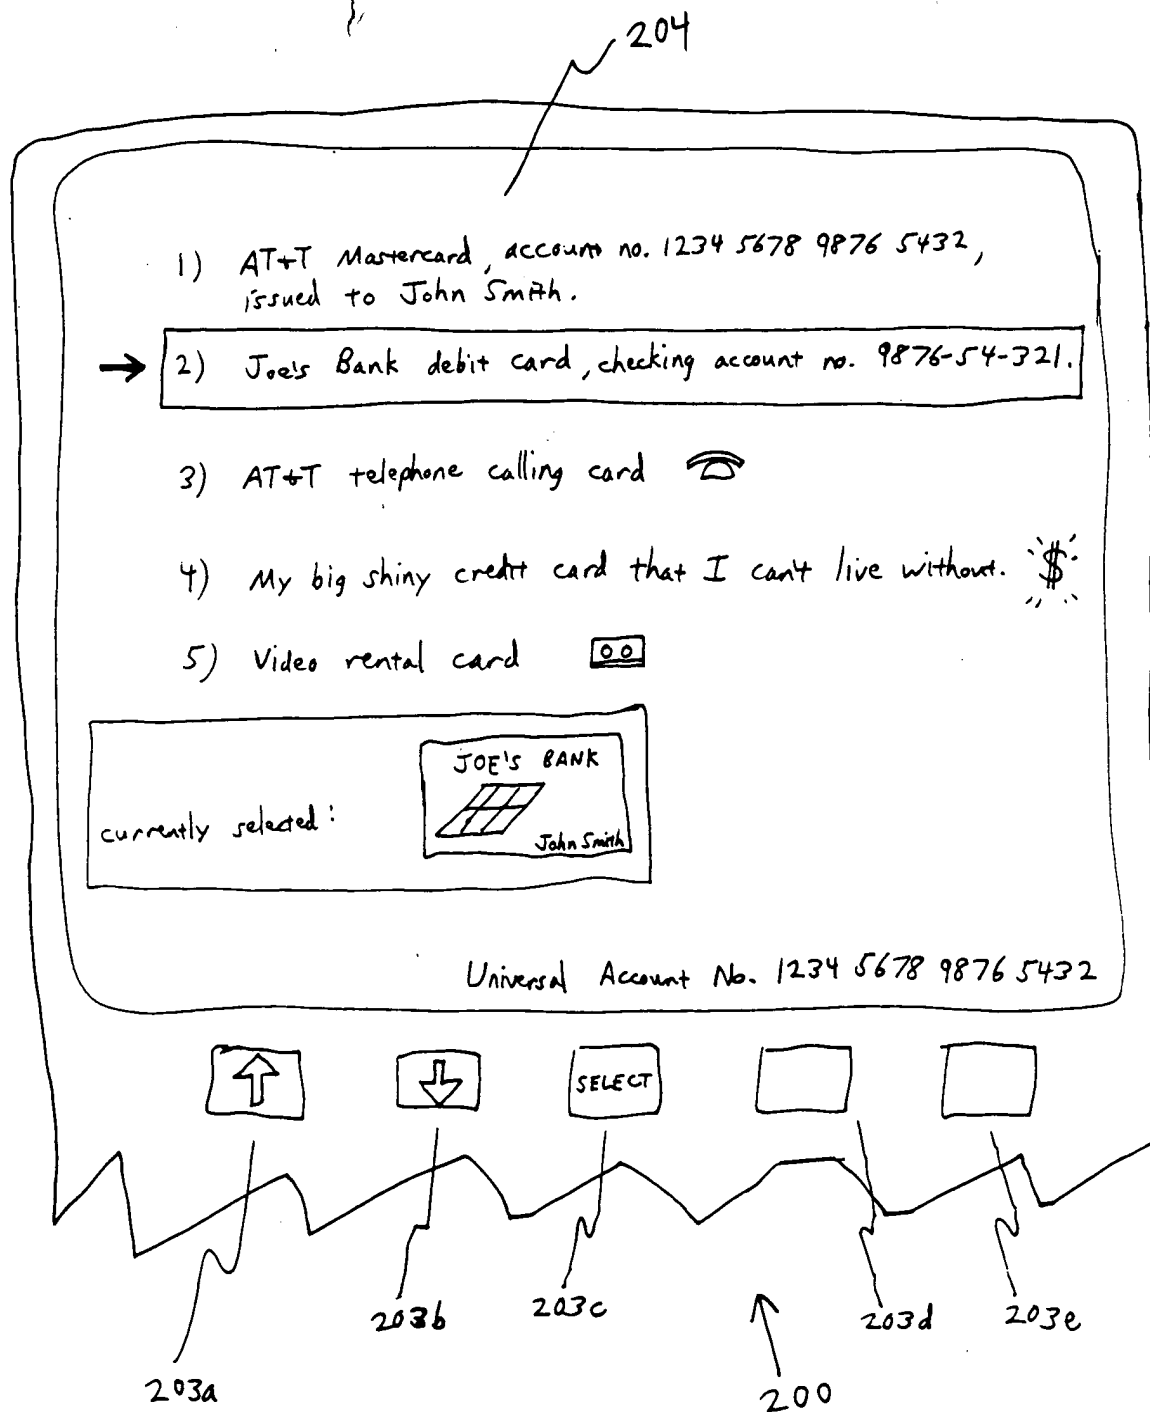 204
1) AT+T Mastercard, account no. 1234 5678 9876 5432,
issued to John Smith.
2) Joe's Bank debit card, checking account no. 9876-54-321.
3) AT+T telephone calling card
4) My big shiny credit card that I can't live without. $
5) Video rental card
JOE'S BANK
currently selected:
John Smith
Universal Account No. 1234 5678 9876 5432
SELECT
203a
203b
203c
203d
203e
200